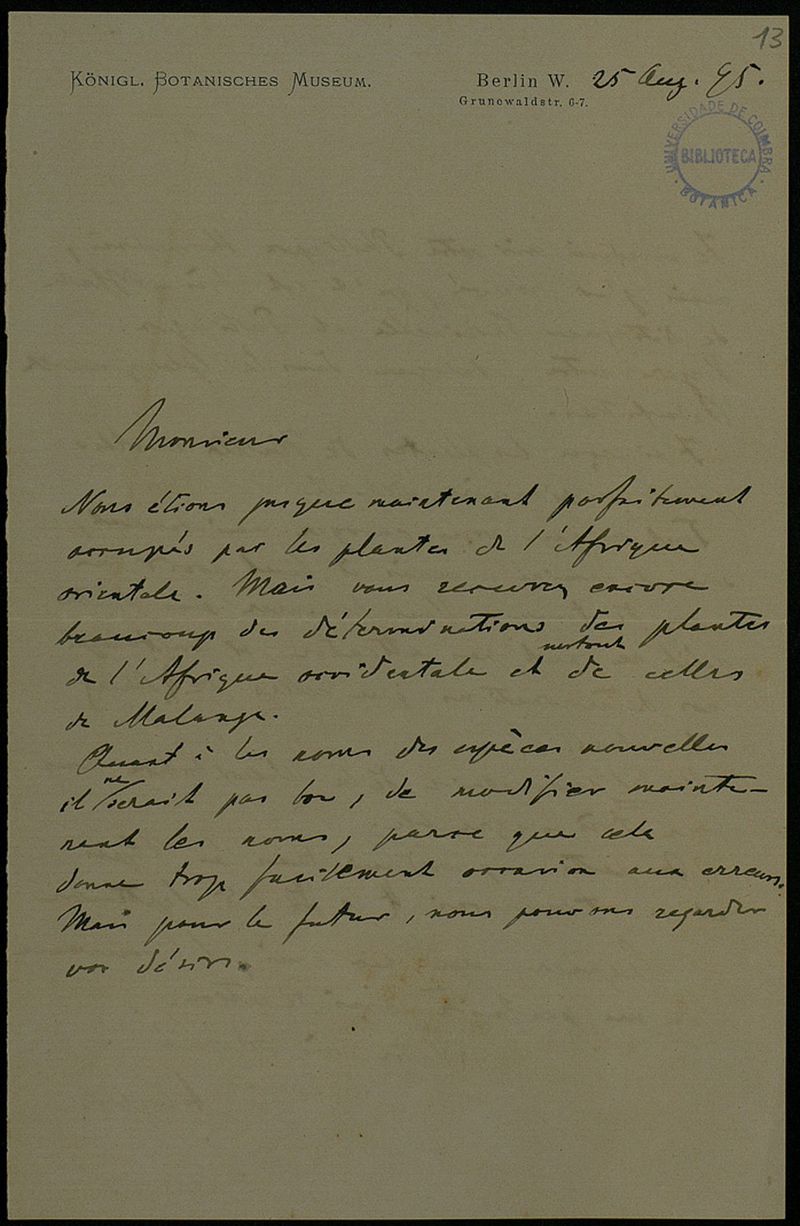 13
KÖNIGL. BOTANISCHES MUSEUM.
Berlin W. 25 Aug. 95.
Grunewaldstr. 6-7.
UNIVERSIDADE DE COIMBRA
BIBLIOTECA
BOTANICA
Monsieur
Nous étions jusque maintenant parfaitement
occupés par les plantes de l'Afrique
orientale. Mais vous recevrez encore
beaucoup des déterminations des plantes
de l'Afrique occidentale et surtout de celles
de Malange.
Quant à les noms des espèces nouvelles
il ne serait pas bon, de modifier mainte-
nant les noms, parce que cela
donne trop facilement occasion aux erreurs.
Mais pour le futur, nous pouvons regarder
vos désirs.